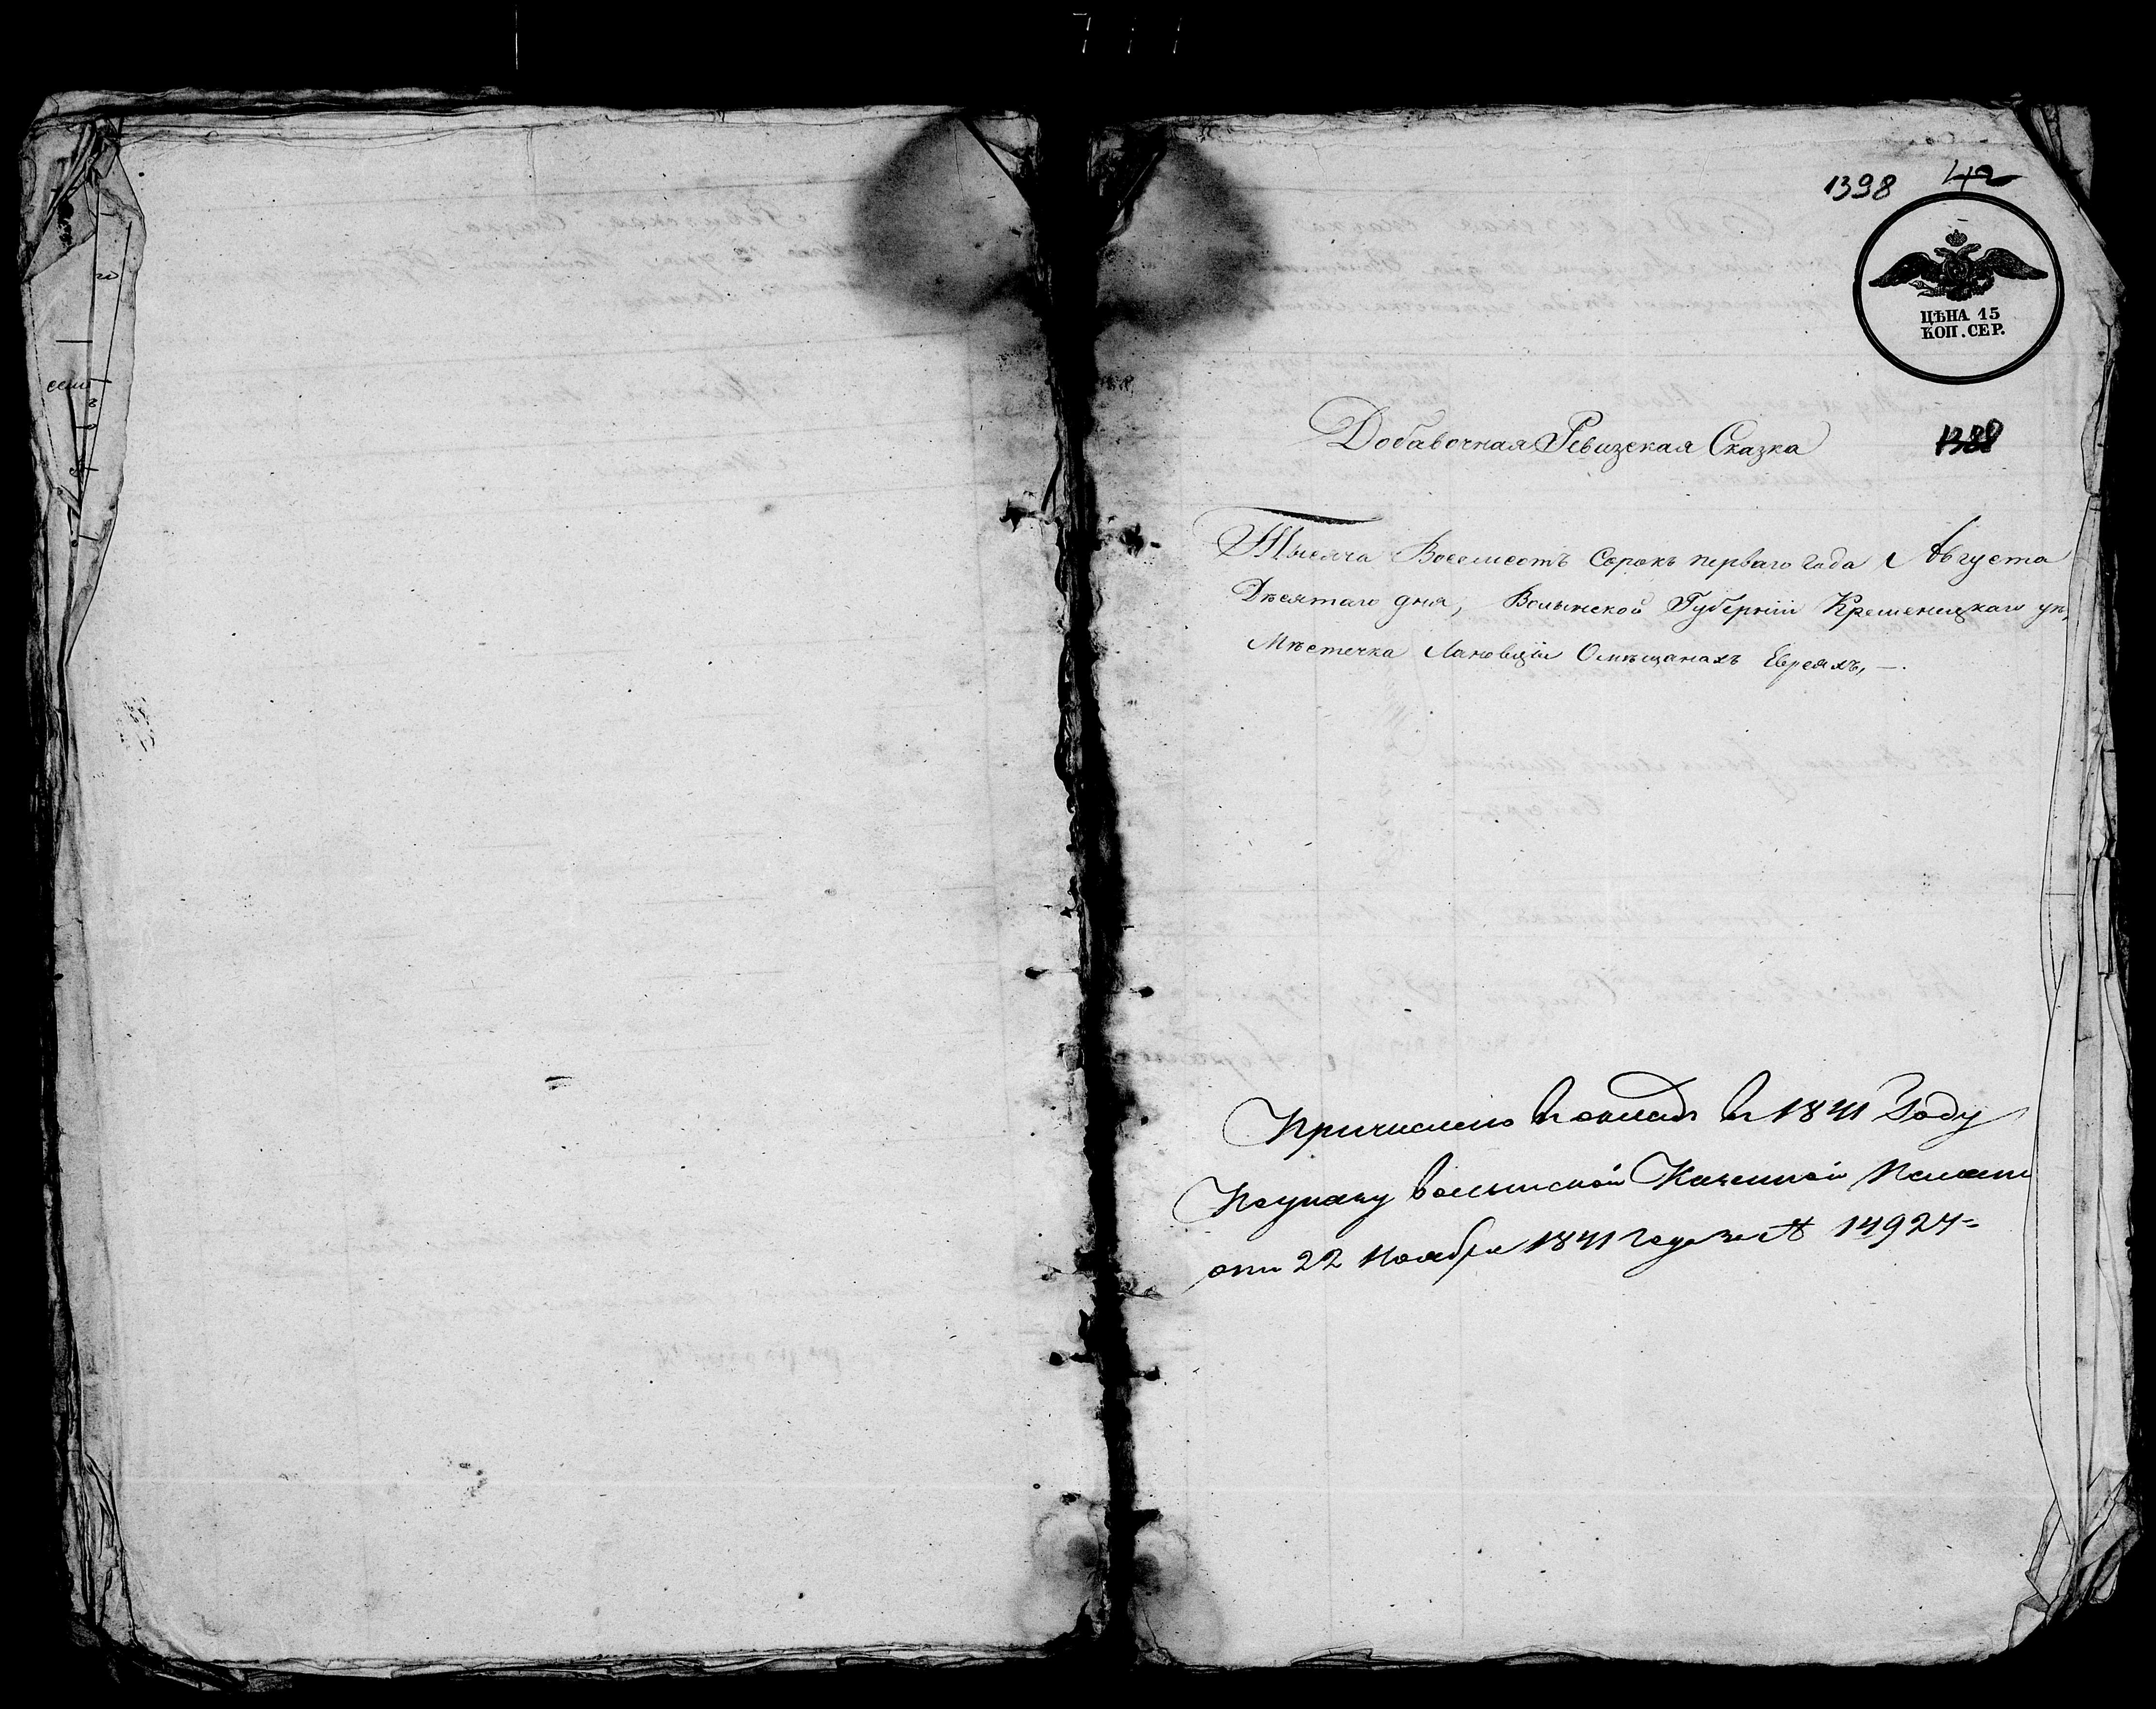 1398 42
ЦѢНА 15
КОП. СЕР.
Добавочная Ревизская Сказка
1388
Тысяча Восемсотъ Сорокъ перваго года Августа
Десятаго дня, Волынской Губерніи Кременецкаго уѣ,
Мѣстечка Лановецъ Омѣщанахъ Евреяхъ, —.
Причислено в окладъ в 1841 Году
По указу волынской Казенной Палаты
отъ 22 Ноября 1841 года за № 14924=